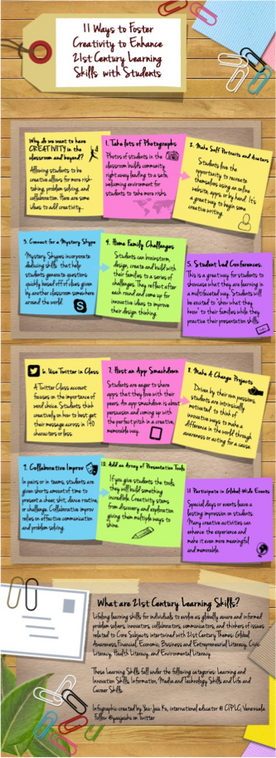 11 Ways to Foster
Creativity to Enhance
21st Century Learning
Skills with Students
Why do we want to have
CREATIVITY in the
classroom and beyond?
Allowing students to be
creative allows for more risk-
taking, problem solving, and
collaboration. Here are some
ideas to add creativity...
1. Take lots of Photographs
Photos of students in the
classroom builds community
right away leading to a safe,
welcoming environment for
students to take more risks.
2. Make Self Portraits and Avatars
Students love the
opportunity to recreate
themselves using an online
website, apps or by hand. It's
a great way to begin some
creative writing.
3. Connect for a Mystery Skype
Mystery Skypes incorporate
deducing skills that help
students generate questions
quickly based off of clues given
by another classroom somewhere
around the world.
4. Home Family Challenges
Students can brainstorm,
design, create and build with
their families to a series of
challenges. They reflect after
each round and come up for
innovative ideas to improve
their design thinking.
5. Student Led Conferences
This is a great way for students to
showcase what they are learning in
a multifaceted way. Students will
be excited to "show what they
know" to their families while they
practice their presentation skills.
6. Use Twitter in Class
A Twitter Class account
focuses on the importance of
word choice. Students think
creatively on how to best get
their message across in 140
characters or less.
7. Host an App Smackdown
Students are eager to share
apps that they love with their
peers. An app smackdown is about
persuasion and coming up with
the perfect pitch in a creative,
memorable way.
8. Make A Change Projects
Driven by their own passions,
Students are extrinsically
motivated to think of
innovative ways to make a
difference in the world through
awareness or acting for a cause.
9. Collaborative Improv
In pairs or in teams, students are
given short amount of time to
present a cheer, skit, dance routine,
or challenge. Collaborative improv
relies on effective communication
and problem solving.
10. Add an Array of Presentation Tools
If you give students the tools,
they will build something
incredible. Creativity stems
from discovery and exploration
giving them multiple ways to
shine.
11. Participate in Global-Wide Events
Special days or events leave a
lasting impression in students.
Many creative activities can
enhance the experience and
make it even more meaningful
and memorable.
What are 21st Century Learning Skills?
Lifelong learning skills for individuals to evolve as globally aware and informed
problem solvers, innovators, collaborators, communicators, and thinkers of issues
related to Core Subjects intertwined with 21st Century Themes: Global
Awareness, Financial, Economic, Business and Entrepreneurial Literacy, Civic
Literacy, Health Literacy, and Environmental Literacy.
These Learning Skills fall under the following categories: Learning and
Innovation Skills, Information, Media and Technology Skills and Life and
Career Skills.
Infographic created by
international educator @
Venezuela
Follow
on Twitter